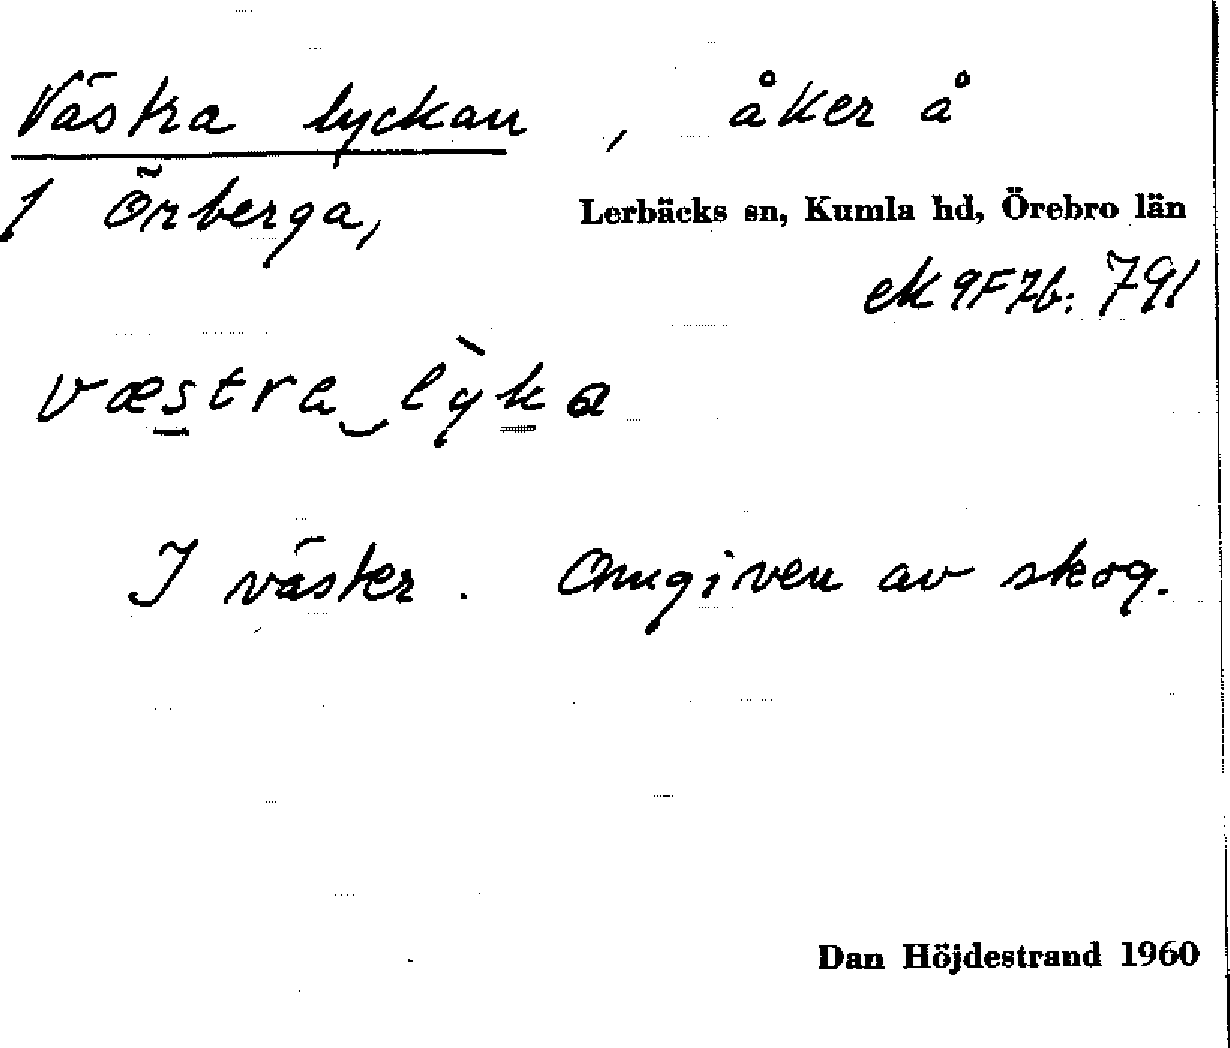 Västra lyckan, åker å
1 Örberga, Lerbäcks sn, Kumla hd, Örebro län
ek 9F7b: 791
væstra lỳka
I väster. Omgiven av skog.
Dan Höjdestrand 1960